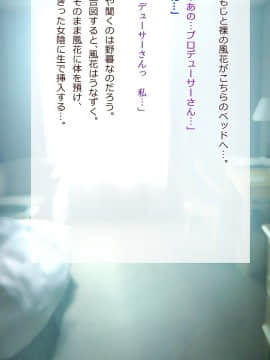 もじと裸の風花がこちらのベッドへ…。
あの…プロデューサーさん…」
…」
デューサーさんっ　私…」
や聞くのは野暮なのだろう。
合図すると、風花はうなずく。
そのまま風花に体を預け、
きった女陰に生で挿入する…。